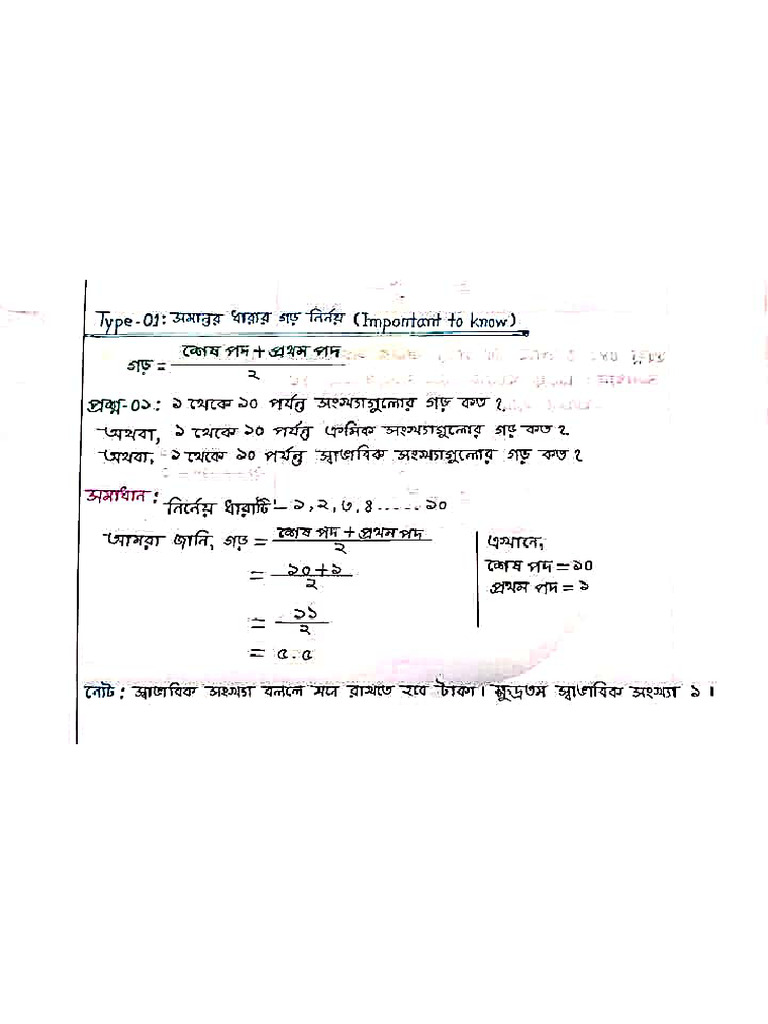 Type-01: সমান্তর ধারার গড় নির্নয় (Important to know)
গড় = শেষ পদ + প্রথম পদ / ২
প্রশ্ন-০১: ১ থেকে ১০ পর্যন্ত সংখ্যাগুলোর গড় কত ?
অথবা, ১ থেকে ১০ পর্যন্ত ক্রমিক সংখ্যাগুলোর গড় কত ?
অথবা, ১ থেকে ১০ পর্যন্ত স্বাভাবিক সংখ্যাগুলোর গড় কত ?
সমাধান: নির্নেয় ধারাটি - ১, ২, ৩, ৪ ..... ১০
আমরা জানি, গড় = শেষ পদ + প্রথম পদ / ২
= ১০+১ / ২
= ১১ / ২
= ৫.৫
এখানে,
শেষ পদ = ১০
প্রথম পদ = ১
নোট: স্বাভাবিক সংখ্যা বললে মনে রাখতে হবে টাকা। ক্ষুদ্রতম স্বাভাবিক সংখ্যা ১।